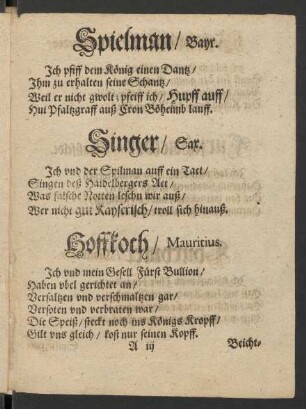 Spielman / Bayr.
Ich pfiff dem König einen Dantz /
Ihm zu erhalten seine Schantz /
Weil er nicht gwolt / pfeiff ich / Hupff auff /
Hui Pfaltzgraff auß Cron Böheimb lauff.
Singer / Sax.
Ich vnd der Spilman auff ein Tact /
Singen deß Haidelbergers Act /
Was falsche Notten leschn wir auß /
Wer nicht gut Kayserisch / woll sich hinauß.
Hoffkoch / Mauritius.
Ich vnd mein Gesell Fürst Bullion /
Haben vbel gerichtet an /
Versaltzen vnd verschmaltzen gar /
Versoten vnd verbraten war /
Die Speiß / steckt noch ins Königs Kropff /
Gilt vns gleich / kost nur seinen Kopff.
A iij Beicht-